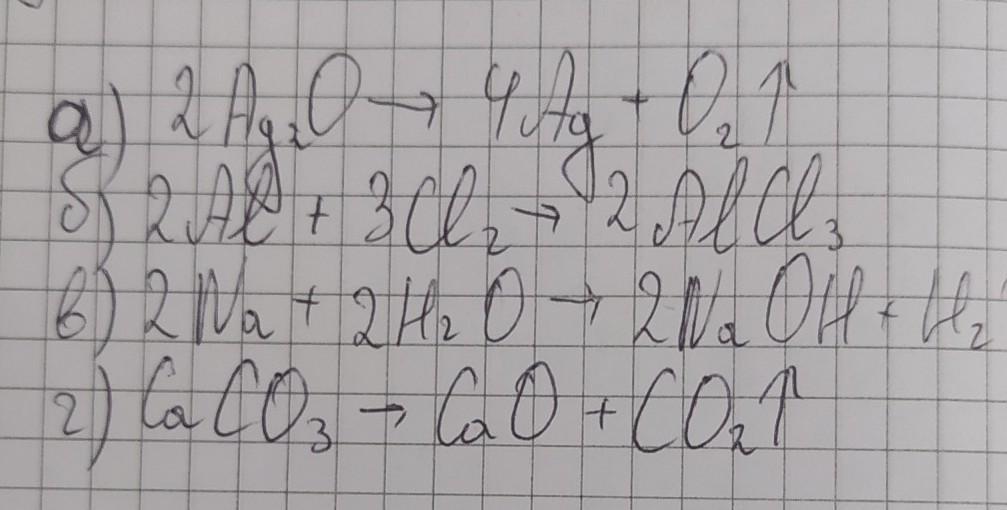 а) 2Ag₂O → 4Ag + O₂↑
б) 2Al + 3Cl₂ → 2AlCl₃
в) 2Na + 2H₂O → 2NaOH + H₂
г) CaCO₃ → CaO + CO₂↑